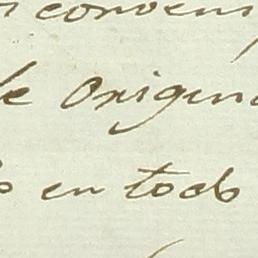 conven
le origen
en todo